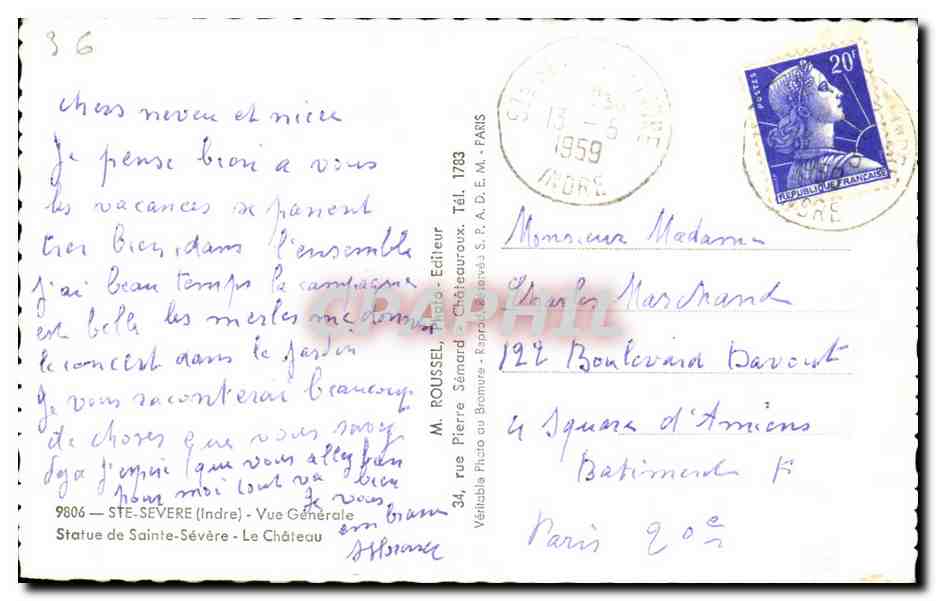 36
chers neveu et nièce
Je pense bien a vous
les vacances se passent
tres bien, dans l'ensemble
j'ai beau temps la campagne
est belle les merles me donnent
le concert dans le jardin
Je vous raconterai beaucoup
de choses que vous savez
deja j'espere que vous allez bien
pour moi tout va bien
Je vous
embrasse
9806 — STE-SEVERE (Indre) - Vue Générale
Statue de Sainte-Sévère - Le Château
M. ROUSSEL, Photo - Editeur
34, rue Pierre Sémard - Châteauroux. Tél. 1783
Véritable Photo au Bromure - Reprod. réservés S. P. A. D. E. M. - PARIS
13 - 6
1959
INDRE
POSTES
20F
REPUBLIQUE FRANCAISE
Monsieur Madame
Charles Marchand
122 Boulevard Davout
4 Square d'Amiens
Batiment F
Paris 20e
CPAPHIL